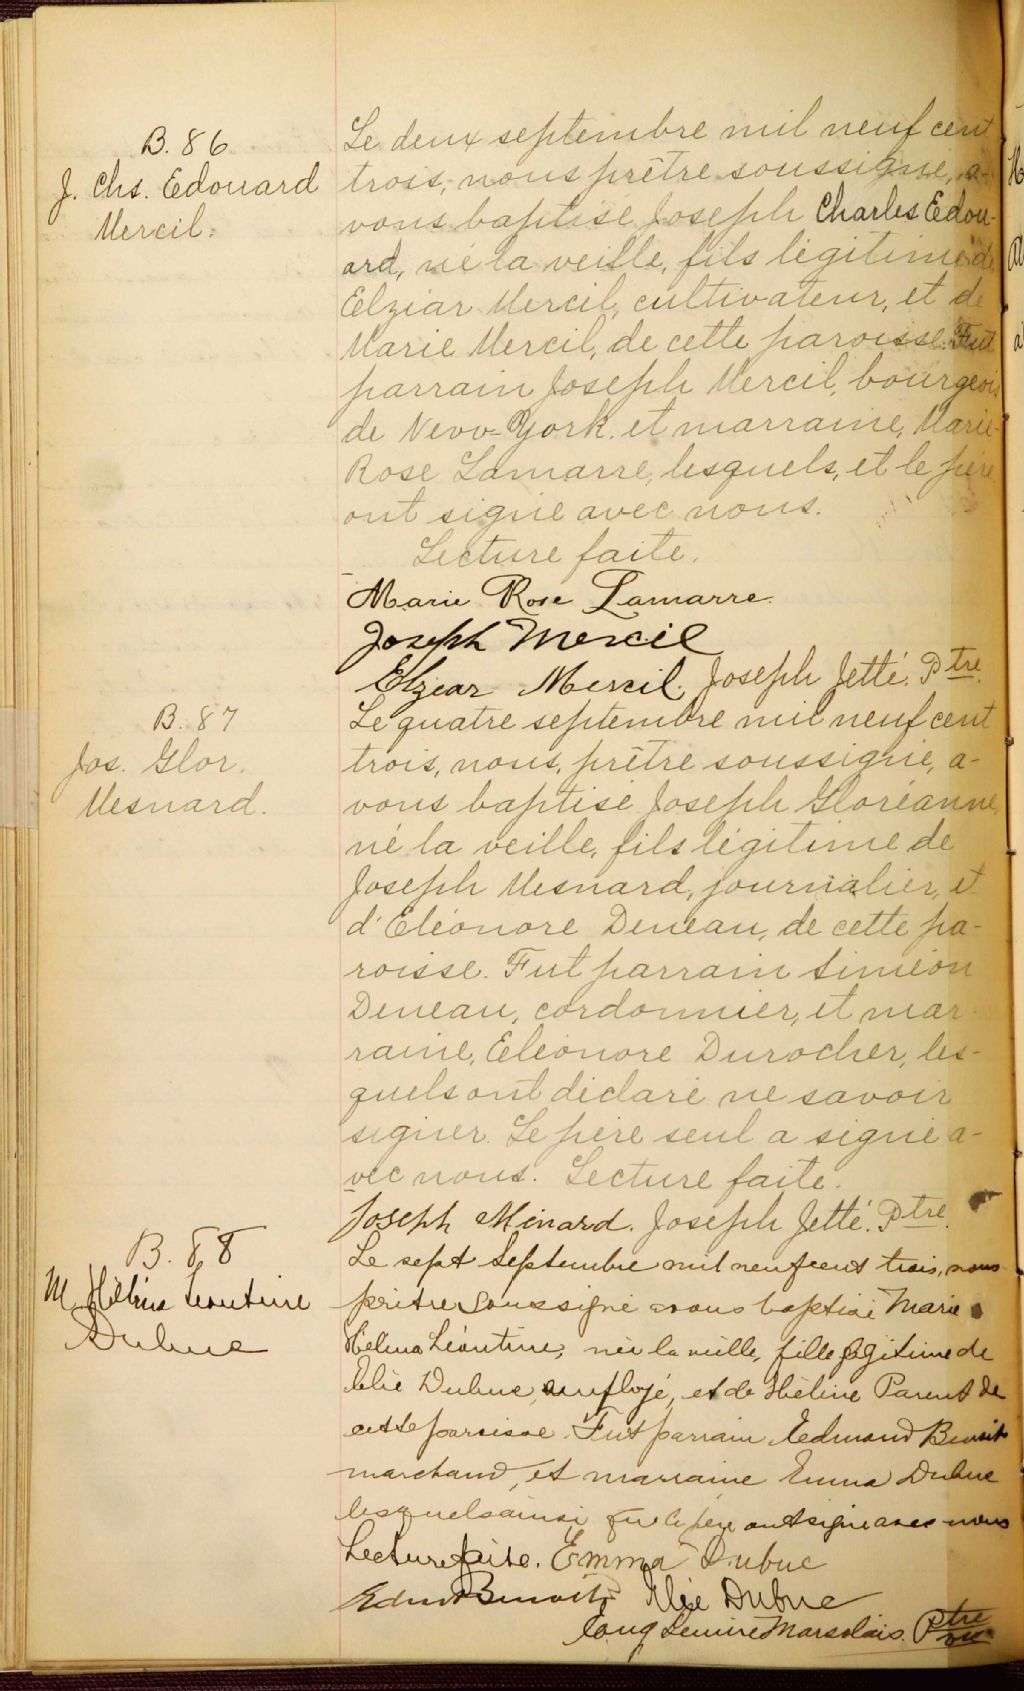 B. 86
J. Chs. Edouard
Mercil.
Le deux septembre mil neuf cent
trois, nous prêtre soussigné, a-
vons baptisé Joseph Charles Edou-
ard, né la veille, fils légitime de
Elzéar Mercil, cultivateur, et de
Marie Mercil, de cette paroisse. Fut
parrain Joseph Mercil, bourgeois
de New-York, et marraine, Marie-
Rose Lamarre, lesquels, et le père
ont signé avec nous.
Lecture faite.
Marie Rose Lamarre.
Joseph Mercil
Elzear Mercil. Joseph Jetté. Ptre.
B. 87
Jos. Glor.
Mesnard.
Le quatre septembre mil neuf cent
trois, nous, prêtre soussigné, a-
vons baptisé Joseph Gloréanne,
né la veille, fils légitime de
Joseph Mesnard, journalier, et
d'Eléonore Deneau, de cette pa-
roisse. Fut parrain Siméon
Deneau, cordonnier, et mar-
raine, Eléonore Durocher, les-
quels ont déclaré ne savoir
signer. Le père seul a signé a-
vec nous. Lecture faite.
Joseph Ménard. Joseph Jetté. Ptre.
B. 88
M. Léontine
Dubuc
Le sept Septembre mil neuf cent trois, nous
prêtre soussigné avons baptisé Marie
Léontine, née la veille, fille légitime de
Elie Dubuc, employé, et de Hélène Parent de
cette paroisse. Fut parrain Edmond Benoit
marchand, et marraine Emma Dubuc
lesquels ainsi que le père ont signé avec nous
Lecture faite. Emma Dubuc
Benoit Elie Dubuc
Marsolais. Ptre